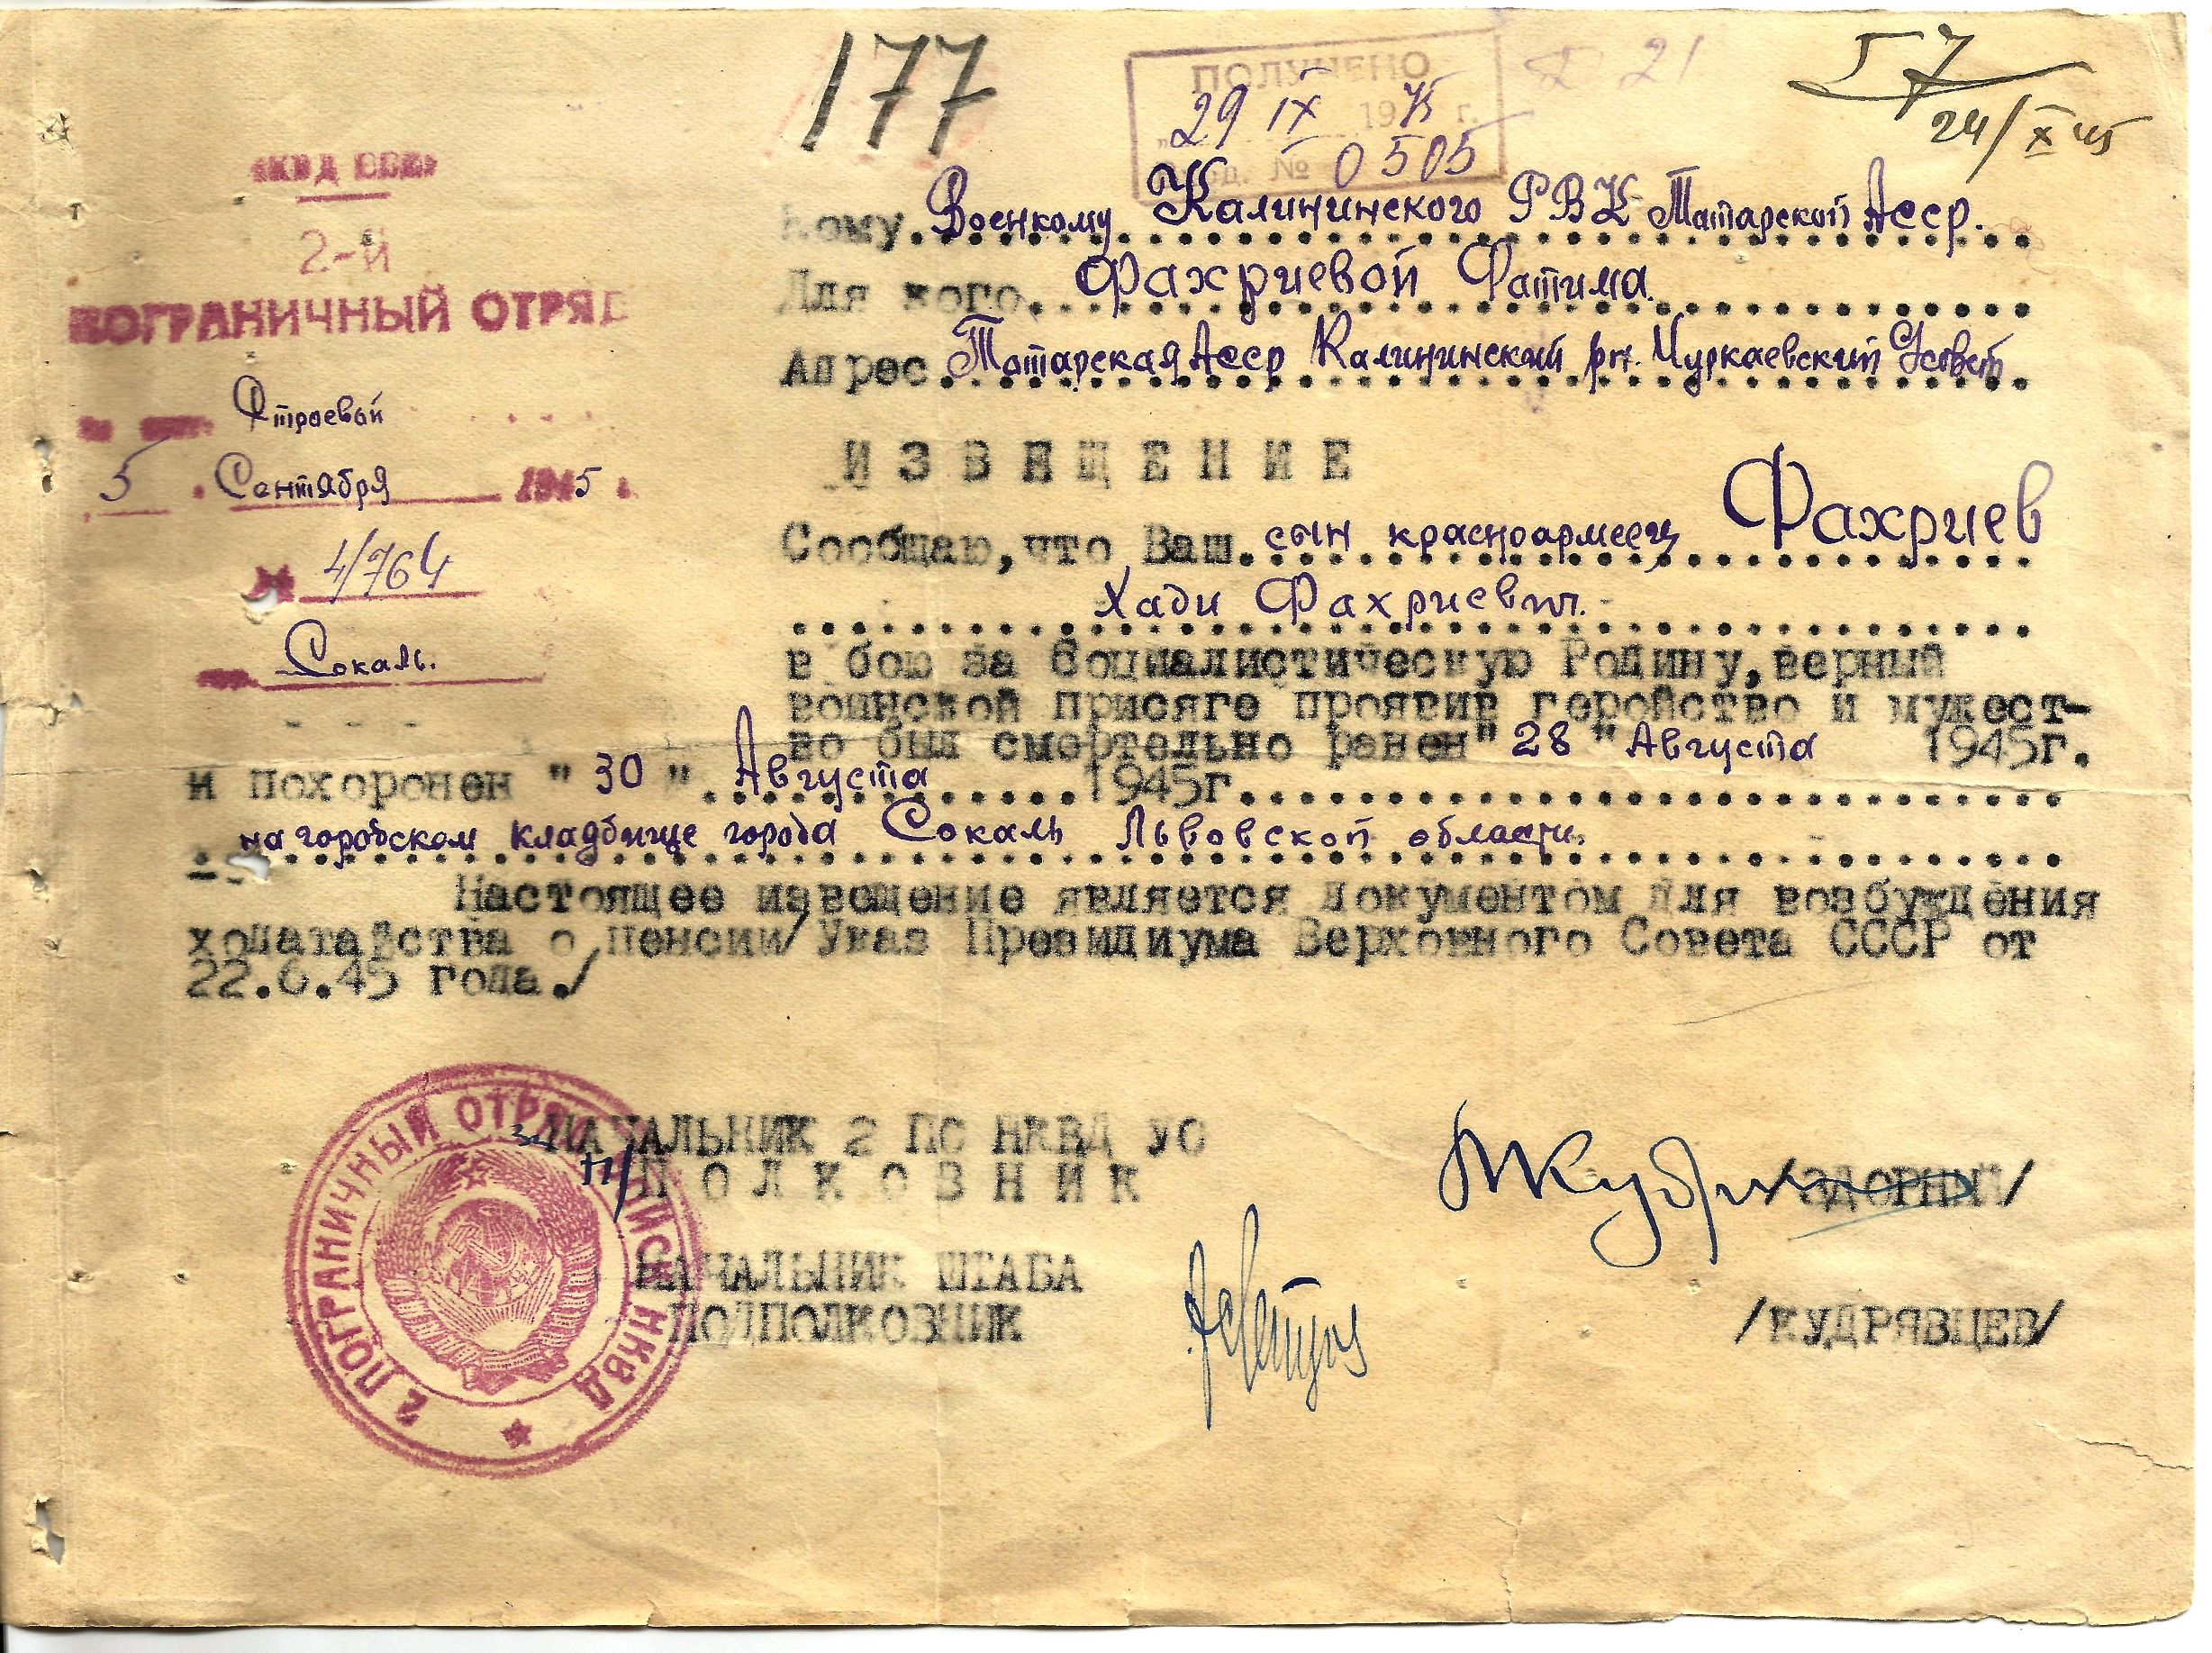 177
ПОЛУЧЕНО
29 IX 1945 г.
№ 0505
21
57
24/X 45
НКВД СССР
2-й
ПОГРАНИЧНЫЙ ОТРЯД
Строевой
5 Сентября 1945
№ 4/764
Сокаль.
Кому. Военкому Калининского РВК Татарской Асср.
Для кого. Фахриевой Фатима.
Адрес. Татарская Асср Калининский рн. Чуркаевский С/совет
ИЗВЕЩЕНИЕ
Сообщаю, что Ваш. сын красноармеец Фахриев
Хади Фахриевич.
в бою за Социалистическую Родину, верный
воинской присяге проявив геройство и мужест-
во был смертельно ранен "28" Августа 1945г.
и похоронен "30" Августа 1945г.
на городском кладбище города Сокаль Львовской области.
Настоящее извещение является документом для возбуждения
ходатайства о пенсии/Указ Президиума Верховного Совета СССР от
22.6.45 года./
НАЧАЛЬНИК 2 ПО НКВД УО
П/ПОЛКОВНИК /ЗДОРНЫЙ/
НАЧАЛЬНИК ШТАБА
ПОДПОЛКОВНИК /КУДРЯВЦЕВ/
2 ПОГРАНИЧНЫЙ ОТРЯД НКВД